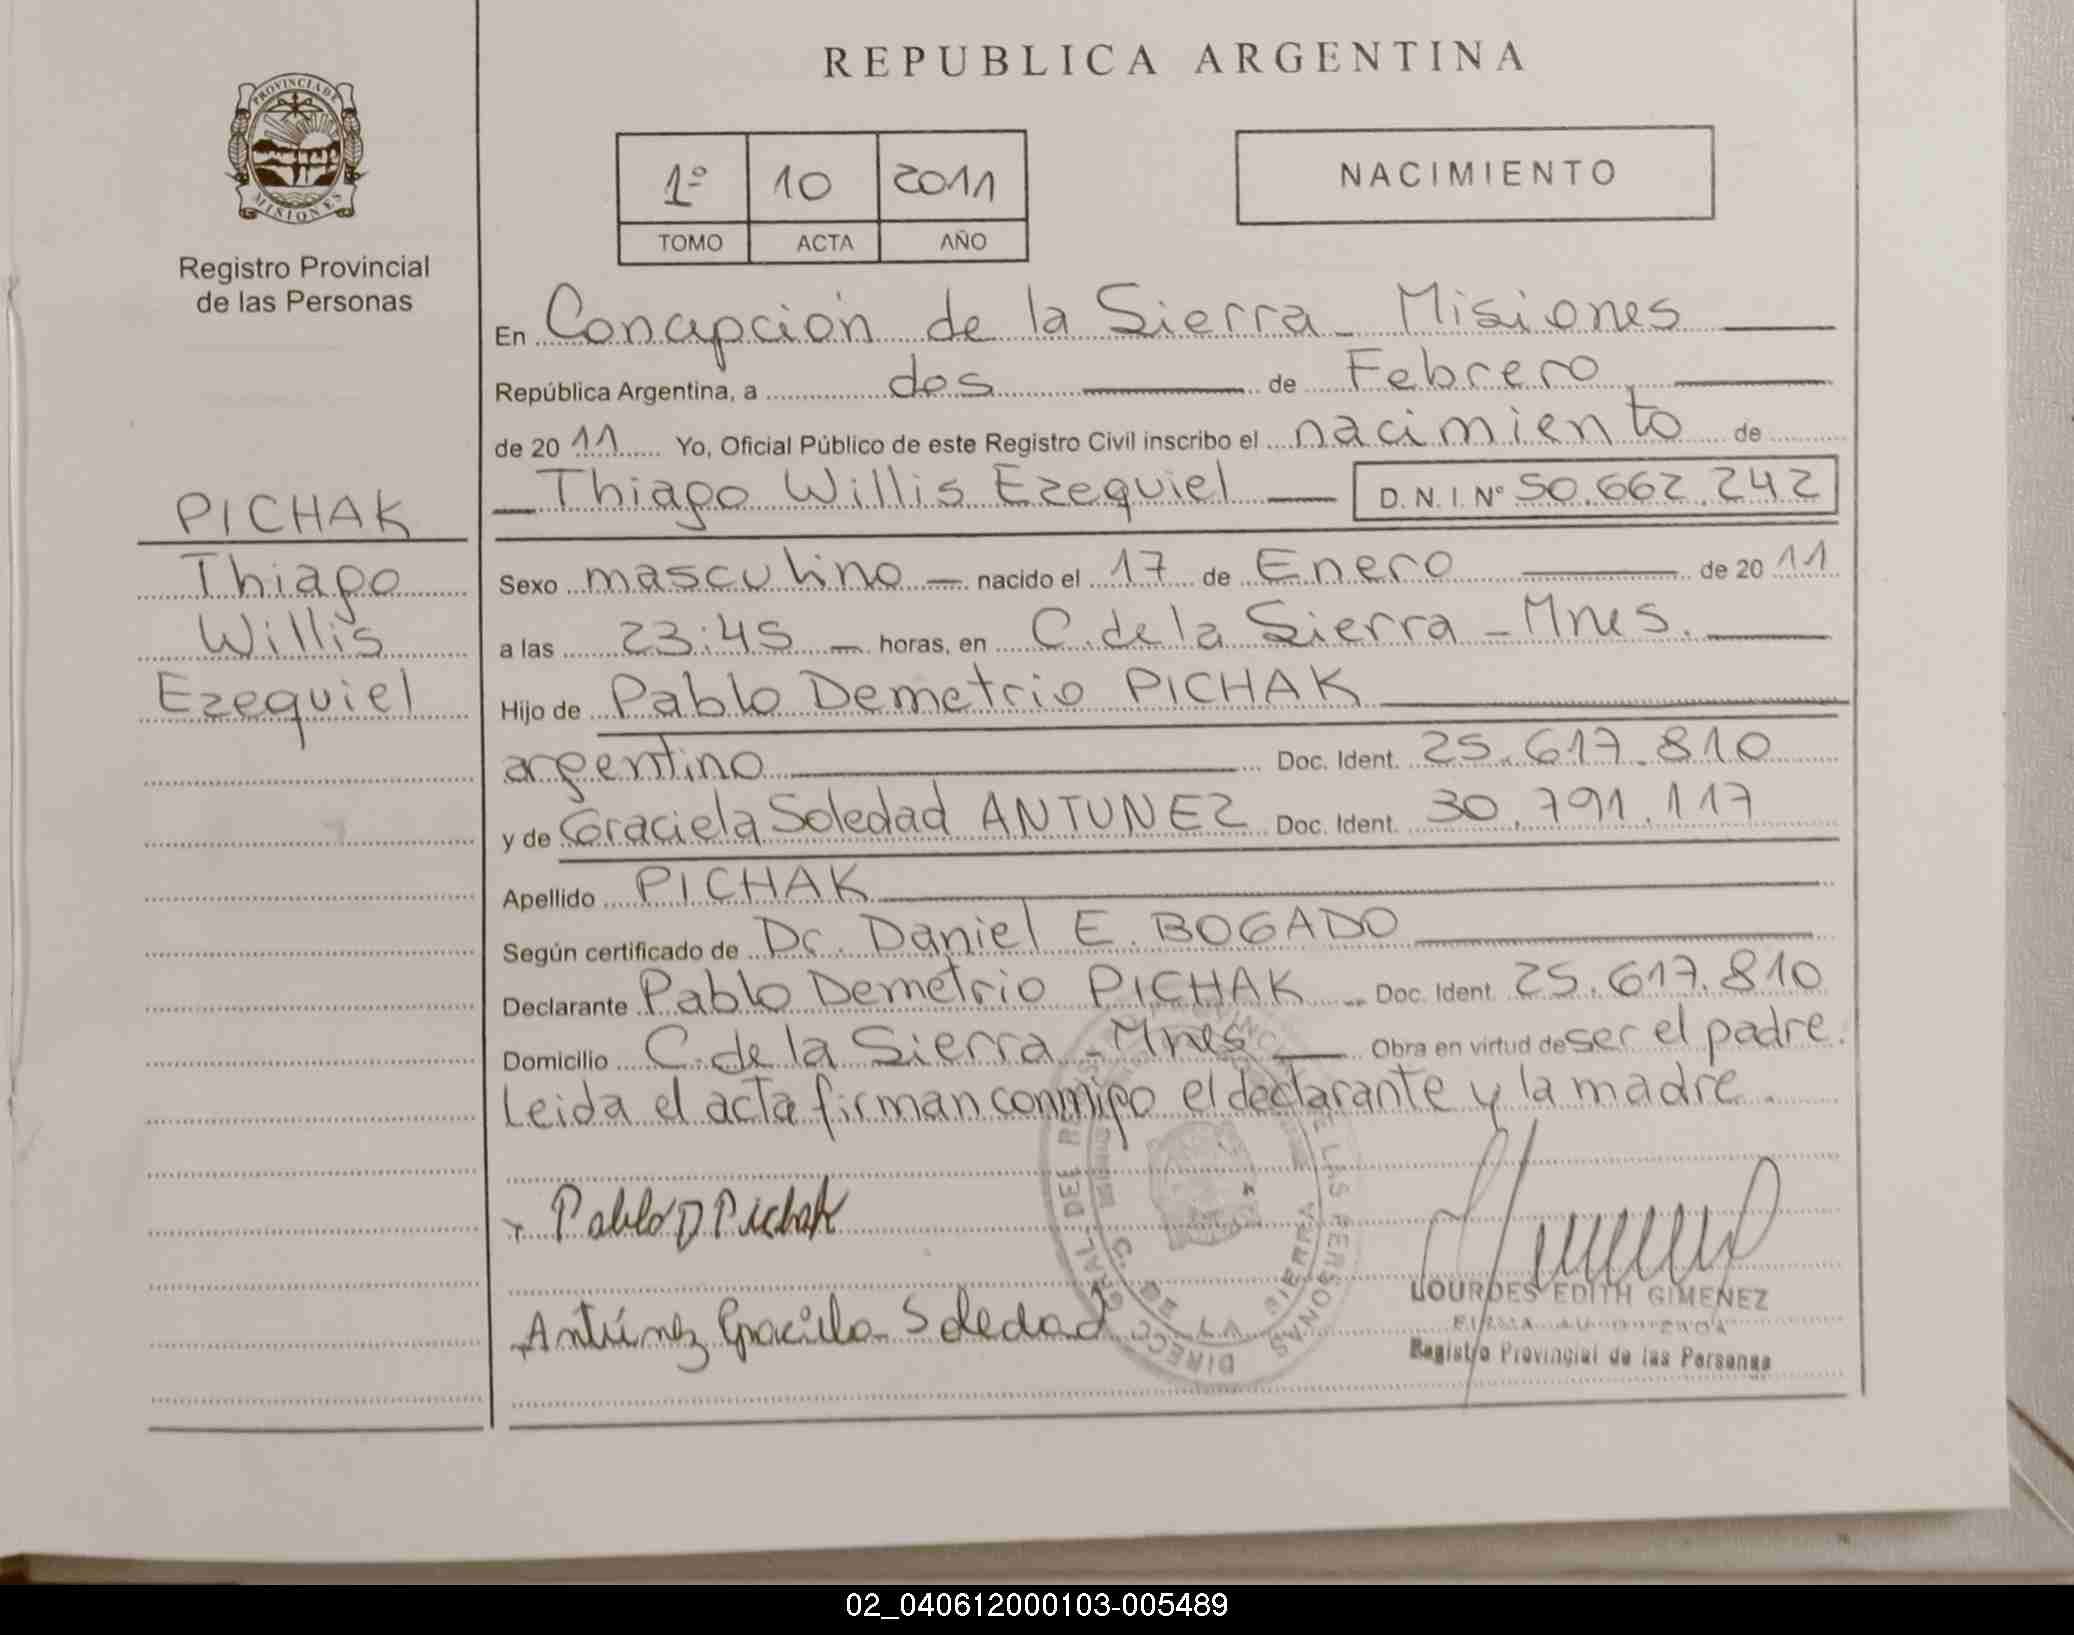 REPUBLICA ARGENTINA
PROVINCIA DE
MISIONES
Registro Provincial
de las Personas
1º 10 2011
TOMO ACTA AÑO
NACIMIENTO
En Concepción de la Sierra - Misiones
República Argentina, a dos de Febrero
de 2011 Yo, Oficial Público de este Registro Civil inscribo el nacimiento de
Thiago Willis Ezequiel D.N.I. Nº 50.662.242
PICHAK
Thiago
Willis
Ezequiel
Sexo masculino nacido el 17 de Enero de 2011
a las 23:45 horas, en C. de la Sierra - Mnes.
Hijo de Pablo Demetrio PICHAK
argentino Doc. Ident. 25.617.810
y de Graciela Soledad ANTUNEZ Doc. Ident. 30.791.117
Apellido PICHAK
Según certificado de Dr. Daniel E. BOGADO
Declarante Pablo Demetrio PICHAK Doc. Ident. 25.617.810
Domicilio C. de la Sierra - Mnes Obra en virtud de ser el padre.
Leida el acta firman conmigo el declarante y la madre.
Pablo D Pichak
Antúnez Graciela Soledad
LOURDES EDITH GIMENEZ
Registro Provincial de las Personas
02_040612000103-005489